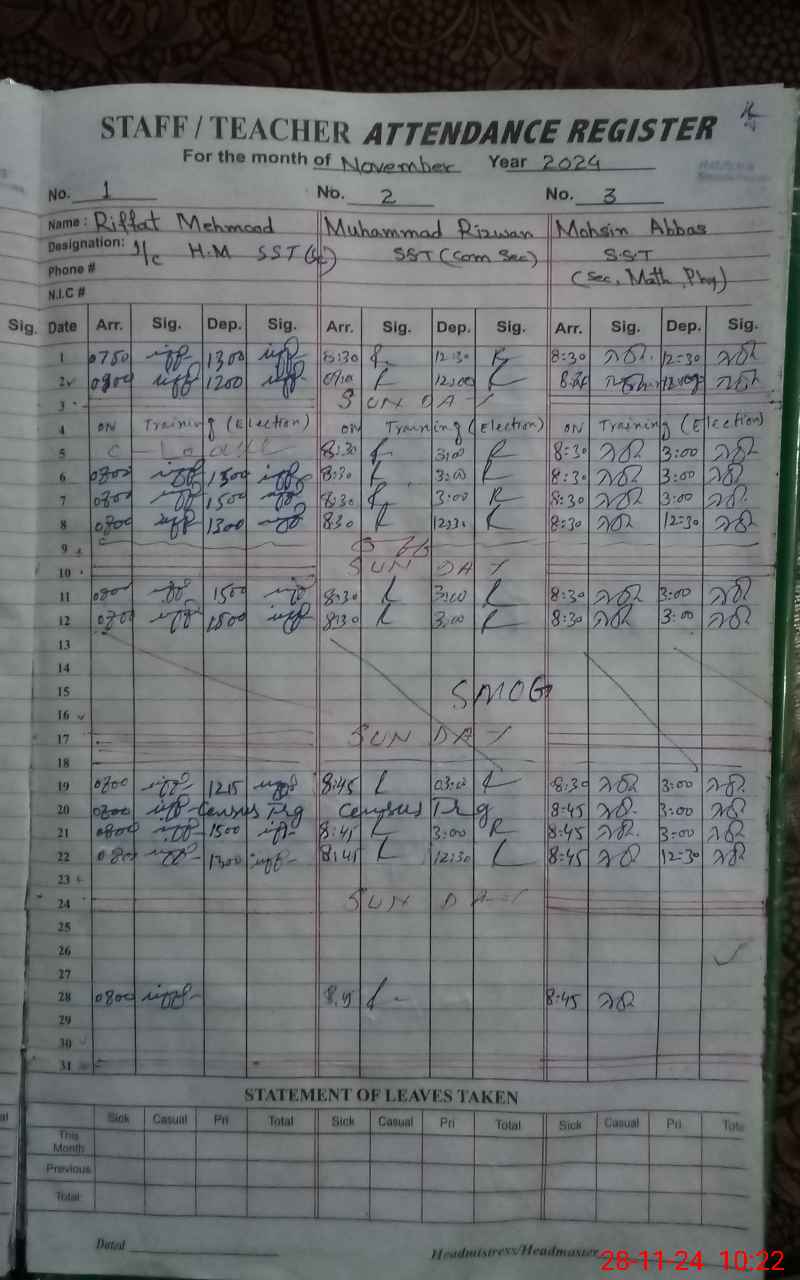 STAFF / TEACHER ATTENDANCE REGISTER
For the month of November Year 2024
No. 1 No. 2 No. 3
Name: Riffat Mehmood Muhammad Rizwan Mohsin Abbas
Designation: I/c H.M SST (Sc) SST (Com Sec) S.S.T
Phone # (Sec, Math, Phy)
N.I.C #
Sig. Date Arr. Sig. Dep. Sig. Arr. Sig. Dep. Sig. Arr. Sig. Dep. Sig.
1 0750 1300 8:30 12:30 8:30 12=30
2 0800 1200 12:00
3 SUNDAY
4 ON Training (Election) ON Training (Election) ON Training (Election)
5 C - Leave 8:30 3:00 8:30 3:00
6 0800 1500 8:30 3:00 8:30 3:00
7 0800 1500 8:30 3:00 8:30 3:00
8 0800 1300 830 12:30 8:30 12=30
9
10 SUNDAY
11 0800 1500 8:30 3:00 8:30 3:00
12 0800 1500 8:30 3:00 8:30 3:00
13
14
15 SMOG
16
17 SUNDAY
18
19 0800 1215 8:45 03:00 8:30 3:00
20 0800 Census Trg Census Trg 8:45 3:00
21 0800 1500 8:45 3:00 8:45 3:00
22 0800 1300 8:45 12:30 8:45 12=30
23
24 SUNDAY
25
26
27
28 0800 8:45 8:45
29
30
31
STATEMENT OF LEAVES TAKEN
Sick Casual Pri Total Sick Casual Pri Total Sick Casual Pri. Tota
This Month
Previous
Total
Dated Headmistress/Headmaster
28-11-24 10:22